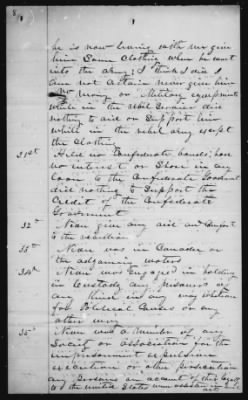 he is now living with me give
him Some clothing when he went
into the army; I think I did I
am not certain never give him
no money or Military equipments
while in the rebel Service did
nothing to aid or Support him
while in the rebel army except
the clothing
31st Held no Confederate bonds; had
no interest or Share in any
loan to the Confederate Government
did nothing to Support the
Credit of the Confederate
Government
32d Never give any aid and Comfort
to the rebellion
33d Never was in Canada or
the adjoining waters
34th Never was Engaged in holding
in Custody any prisoners of
any kind in any way whatever
for Political Causes or any
other way
35th Never was a Member of any
Society or association for the
imprisonment expulsion
execution or other persecution
any persons on account of their loyalty
to the United States